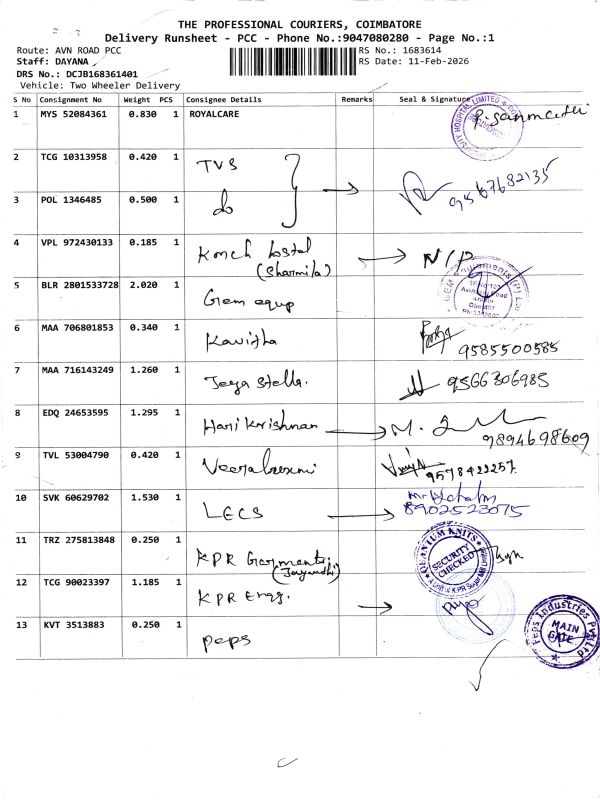 THE PROFESSIONAL COURIERS, COIMBATORE
Delivery Runsheet - PCC - Phone No.:9047080280 - Page No.:1
Route: AVN ROAD PCC
RS No.: 1683614
Staff: DAYANA
RS Date: 11-Feb-2026
DRS No.: DCJB168361401
Vehicle: Two Wheeler Delivery
S No Consignment No Weight PCS Consignee Details Remarks Seal & Signature
1 MYS 52084361 0.830 1 ROYALCARE
2 TCG 10313958 0.420 1 TVS
9567682135
3 POL 1346485 0.500 1 do
4 VPL 972430133 0.185 1 Kmch hostal N/P
(Sharmila)
5 BLR 2801533728 2.020 1 Gem equp
6 MAA 706801853 0.340 1 Kavitha
9585500585
7 MAA 716143249 1.260 1 Jeya Stella. 9566306985
8 EDQ 24653595 1.295 1 Hari Krishnan
9894698609
9 TVL 53004790 0.420 1 Veeralaxmi
9578422257
10 SVK 60629702 1.530 1 LECS
8902523075
11 TRZ 275813848 0.250 1 KPR Garments
(Jayanthi)
QUANTUM KNITS
SECURITY
CHECKED
12 TCG 90023397 1.185 1 KPR Engg.
13 KVT 3513883 0.250 1 peps
Peps Industries Pvt Ltd
MAIN
GATE